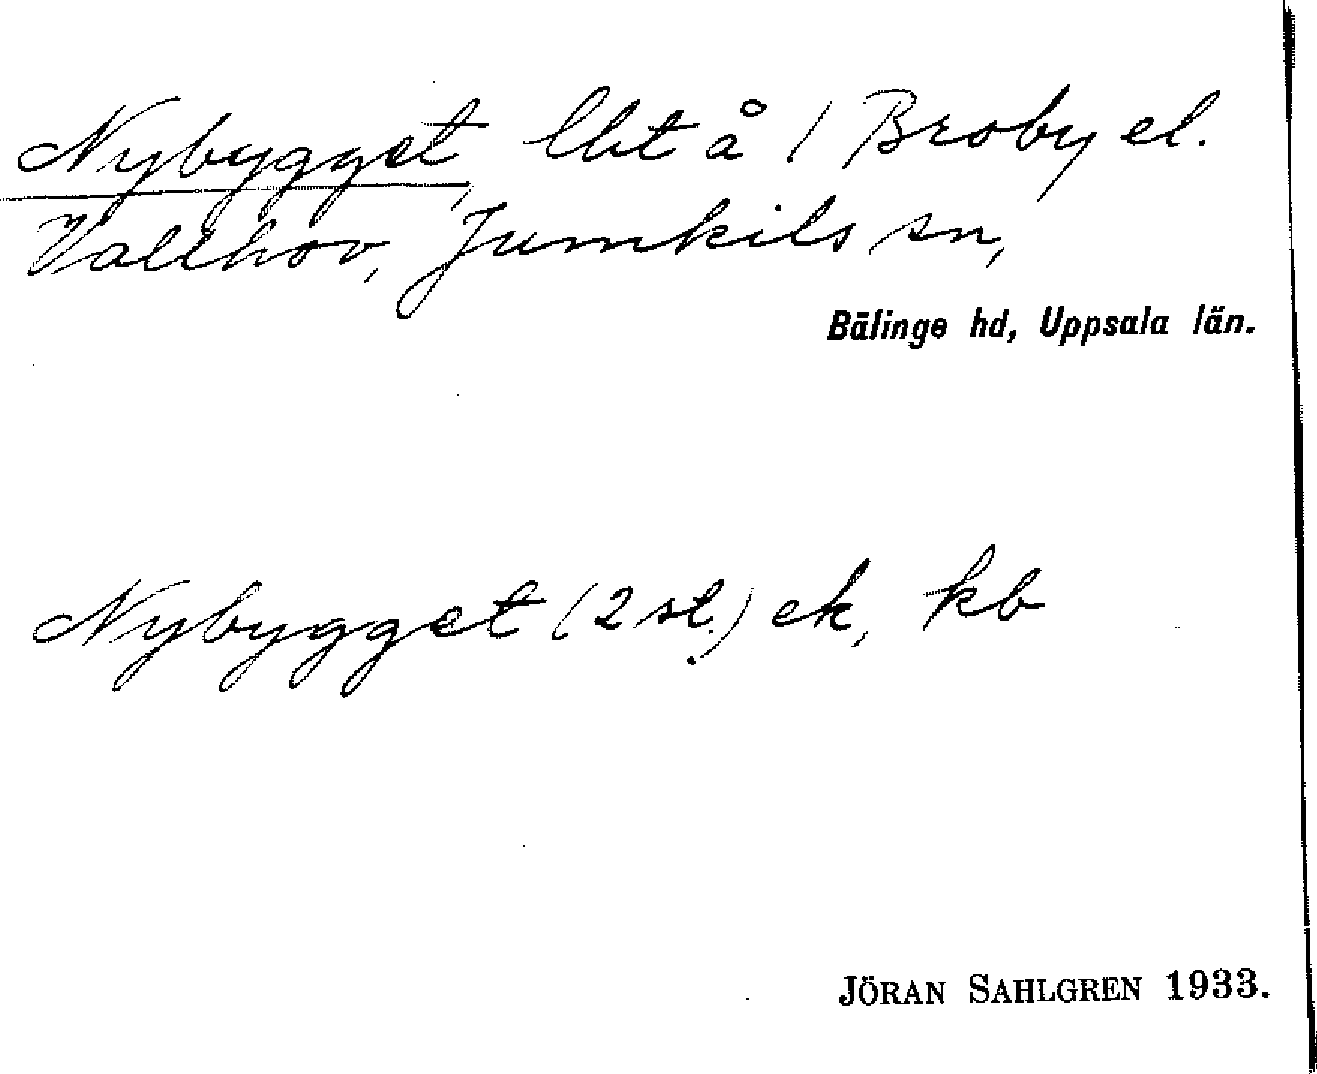 Nybygget, lht å / Broby el.
Vallhov, Jumkils sn,
Bälinge hd, Uppsala län.
Nybygget (2 st.) ek, kb
JÖRAN SAHLGREN 1933.